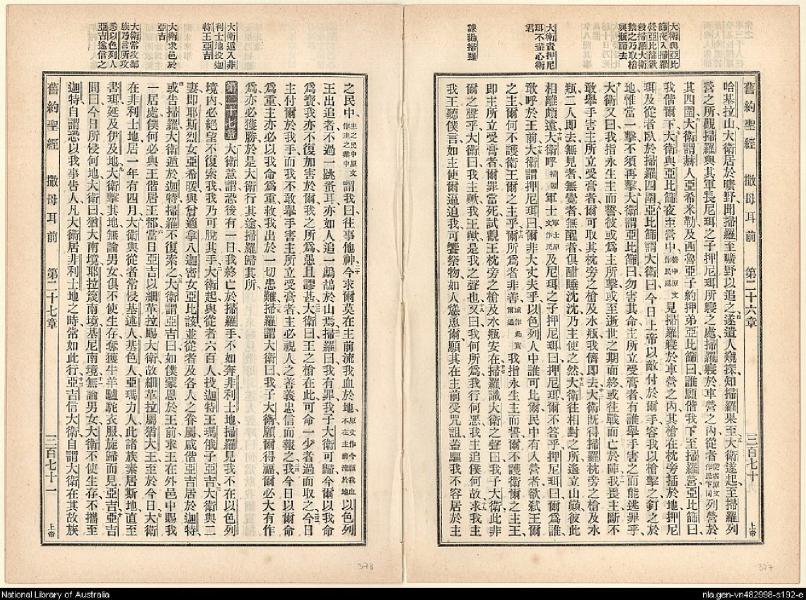 舊約聖經 撒母耳前 第二十六章 三百七十 上帝
大衛與亞比
篩夜入掃羅
營亞比篩欲
殺掃羅大衛
禁之乃取槍
與瓶而去
大衛責押尼
珥不盡心衛
君
哈基拉山大衛居於曠野聞掃羅至曠野以追之遂遣人窺探知掃羅果至大衛遂起至掃羅列
營之所觀掃羅與其軍長尼珥之子押尼珥所寢之處掃羅寢於車營之內從者 列營於
其四圍大衛謂赫人亞希米勒及西魯亞子約押弟亞比篩曰誰願偕我下至掃羅營亞比篩曰
我偕爾下大衛與亞比篩夜至營中 見掃羅寢於車營之內其槍在枕旁插於地押尼
珥及從者臥於掃羅四圍亞比篩謂大衛曰今日上帝以敵付於爾手容我以槍擊之釘之於
地惟當一擊不須再擊大衛謂亞比篩曰勿害其命主所立受膏者有誰舉手害之而能逃罪乎
大衛又曰我指永生主而誓彼或為主所擊或至逝世之期而終或往戰而亡於陣我畏主斷不
敢舉手害主所立受膏者爾可取其枕旁之槍及水瓶我儕即去大衛既得掃羅枕旁之槍及水
瓶二人即去無見者無覺者無醒者俱酣睡沈沈乃主使之然大衛往相對之所遙立山巔彼此
相離頗遠大衛呼 軍士 及尼珥之子押尼珥曰押尼珥不答乎押尼珥曰爾為誰
敢呼於王前大衛謂押尼珥曰爾非大丈夫乎以色列人中誰可比爾民中有人曾欲弒王爾
之主爾何不護衛王爾之主乎爾所為者非善 我指永生主而誓爾不護衛爾之主王
即主所立受膏者爾罪當死試觀王枕旁之槍及水瓶安在掃羅識大衛之聲曰我子大衛此非
爾之聲乎大衛曰我主王歟王歟是我之聲也又曰我何所為我行何惡我主追僕何故求我主
我王聽僕言如主使爾逼迫我可饗祭物如人慫恿爾願其在主前受咒詛蓋驅我不容居於主
377
舊約聖經 撒母耳前 第二十七章 三百七十一 上帝
大衛遁入非
利士地投迦
特王亞吉
大衛求邑於
亞吉
之民中 謂我曰往事他神今求爾莫在主前流我血於地 以色列
王出追者不過一跳蚤耳亦如人追一鷓鴣於山焉掃羅曰我有罪我子大衛可歸今爾以我命
為寶我亦不復加害於爾我之所為愚且謬甚大衛曰王之槍在此可命一少者過而取之今日
主付爾於我手而我不敢舉手害主所立受膏者主必視人之善義忠信而報之我今日以爾命
為重主亦必以我命為重救我出於一切患難掃羅謂大衛曰我子大衛願爾得福爾必大有作
為亦必獲勝於是大衛行其途掃羅歸其所
第二十七章 大衛意謂恐後有一日我終亡於掃羅手不如奔非利士地掃羅見我不在以色列
境內必絕望不復索我我乃可脫其手大衛起與從者六百人投迦特王瑪俄子亞吉大衛與二
妻即耶斯烈女亞希暖與曾適拿八迦密女亞比該並從者及各人之眷屬咸偕亞吉居於迦特
或告掃羅大衛遁於迦特掃羅不復索之大衛謂亞吉曰如僕蒙恩於王前求王在外邑中賜我
一居處僕何必與王偕居王都當日亞吉以細革拉賜大衛故細革拉屬猶大王至於今日大衛
在非利士地居一年有四月大衛與從者常侵基遜人基色人亞瑪力人此諸族素居斯地直至
書珥延及伊及地大衛擊其地無論男女俱不使生存奪獲牛羊驢駝衣服旋歸而見亞吉亞吉
問曰今日所侵何地大衛曰猶大南境耶拉篾南境基尼南境無論男女大衛不使生存不攜至
迦特自謂恐以我事告人凡大衛居非利士地之時常如此行亞吉信大衛自謂大衛在其故族
378
National Library of Australia
nla.gen-vn482998-s192-e